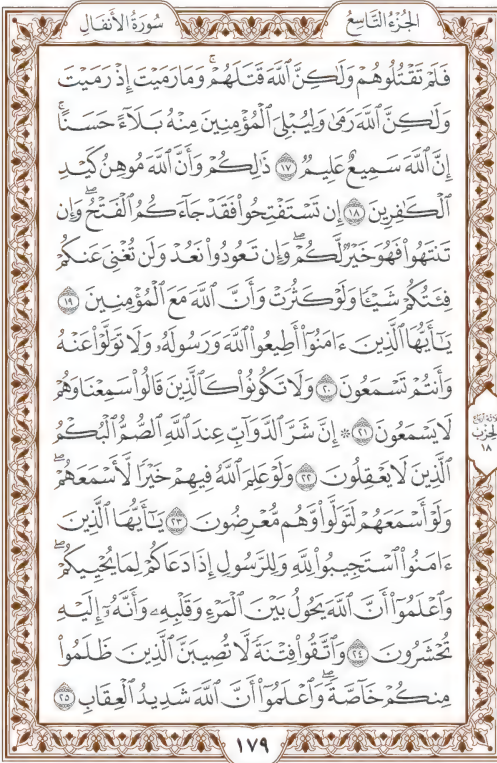 الجُزْءُ التَّاسِعُ سُورَةُ الأَنفَالِ
فَلَمْ تَقْتُلُوهُمْ وَلَٰكِنَّ ٱللَّهَ قَتَلَهُمْ ۚ وَمَا رَمَيْتَ إِذْ رَمَيْتَ
وَلَٰكِنَّ ٱللَّهَ رَمَىٰ وَلِيُبْلِىَ ٱلْمُؤْمِنِينَ مِنْهُ بَلَآءً حَسَنًا ۚ
إِنَّ ٱللَّهَ سَمِيعٌ عَلِيمٌ ١٧ ذَٰلِكُمْ وَأَنَّ ٱللَّهَ مُوهِنُ كَيْدِ
ٱلْكَٰفِرِينَ ١٨ إِن تَسْتَفْتِحُوا۟ فَقَدْ جَآءَكُمُ ٱلْفَتْحُ ۖ وَإِن
تَنتَهُوا۟ فَهُوَ خَيْرٌ لَّكُمْ ۖ وَإِن تَعُودُوا۟ نَعُدْ وَلَن تُغْنِىَ عَنكُمْ
فِئَتُكُمْ شَيْـًٔا وَلَوْ كَثُرَتْ وَأَنَّ ٱللَّهَ مَعَ ٱلْمُؤْمِنِينَ ١٩
يَٰٓأَيُّهَا ٱلَّذِينَ ءَامَنُوٓا۟ أَطِيعُوا۟ ٱللَّهَ وَرَسُولَهُۥ وَلَا تَوَلَّوْا۟ عَنْهُ
وَأَنتُمْ تَسْمَعُونَ ٢٠ وَلَا تَكُونُوا۟ كَٱلَّذِينَ قَالُوا۟ سَمِعْنَا وَهُمْ
لَا يَسْمَعُونَ ٢١ ۞ إِنَّ شَرَّ ٱلدَّوَآبِّ عِندَ ٱللَّهِ ٱلصُّمُّ ٱلْبُكْمُ
ٱلَّذِينَ لَا يَعْقِلُونَ ٢٢ وَلَوْ عَلِمَ ٱللَّهُ فِيهِمْ خَيْرًا لَّأَسْمَعَهُمْ ۖ
وَلَوْ أَسْمَعَهُمْ لَتَوَلَّوا۟ وَّهُم مُّعْرِضُونَ ٢٣ يَٰٓأَيُّهَا ٱلَّذِينَ
ءَامَنُوا۟ ٱسْتَجِيبُوا۟ لِلَّهِ وَلِلرَّسُولِ إِذَا دَعَاكُمْ لِمَا يُحْيِيكُمْ ۖ
وَٱعْلَمُوٓا۟ أَنَّ ٱللَّهَ يَحُولُ بَيْنَ ٱلْمَرْءِ وَقَلْبِهِۦ وَأَنَّهُۥٓ إِلَيْهِ
تُحْشَرُونَ ٢٤ وَٱتَّقُوا۟ فِتْنَةً لَّا تُصِيبَنَّ ٱلَّذِينَ ظَلَمُوا۟
مِنكُمْ خَآصَّةً ۖ وَٱعْلَمُوٓا۟ أَنَّ ٱللَّهَ شَدِيدُ ٱلْعِقَابِ ٢٥
الحِزْبُ
١٨
١٧٩